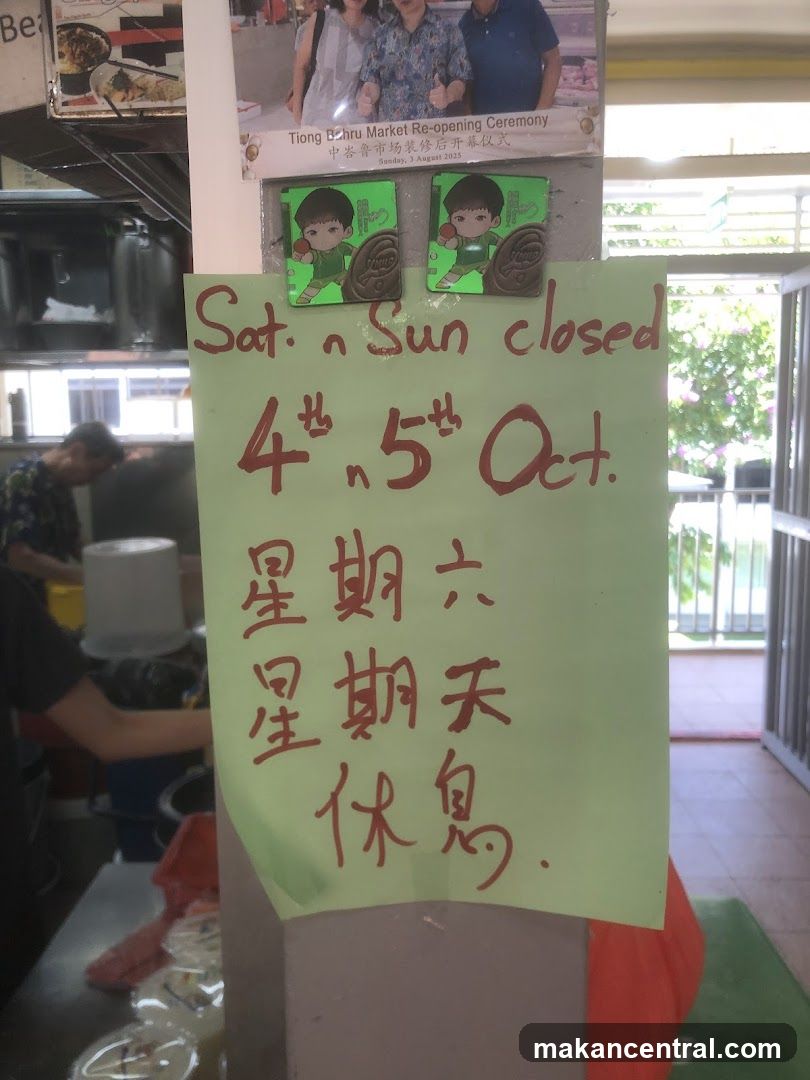 Bea
Tiong Bahru Market Re-opening Ceremony
中峇鲁市场装修后开幕仪式
Sunday, 3 August 2025
Sat. n Sun closed
4th n 5th Oct.
星期六
星期天
休息.
makancentral.com